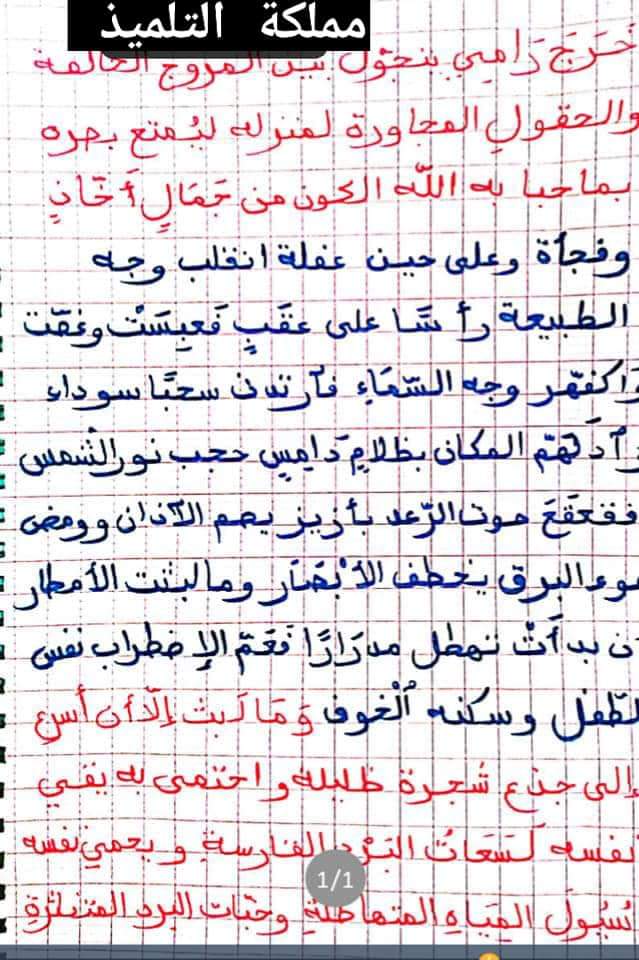 مملكة التلميذ
خَرَجَ رَامِي يتجوّل بين المروج الحالمة
والحقولِ المجاورة لمنزله ليُمتع بصره
بما حبا به اللّه الكون من جَمَالٍ أَخّاذٍ
وفجأة وعلى حين غفلة انقلب وجه
الطبيعة رأسًا على عقَبٍ فَعبِسَتْ وغضّت
واكفهّر وجه السّمَاءِ فآرتدى سحبًا سوداء
وآدلَهمّ المكان بظلامٍ دَامِسٍ حجب نور الشّمس
فقعقَعَ صوت الرّعد بأزيز يصم الآذان وومض
ضوء البرق يخطف الأبْصَار وما لبثت الأمطار
أن بدأتْ تهطل مدرَارًا فَعَمّ الإضطراب نفس
الطّفل وسكنه ٱلْخوف وَمَا لَبث إلّا أن أسرع
إلى جذع شُجرة ظليلة واحتمى به يقي
نفسه لَسَعَاتُ البَرْد القارسةِ و يحمي نفسه
سُيُولَ المِيَاهِ المتهاطلةِ وحبّات البرد المتناثرةِ
1/1